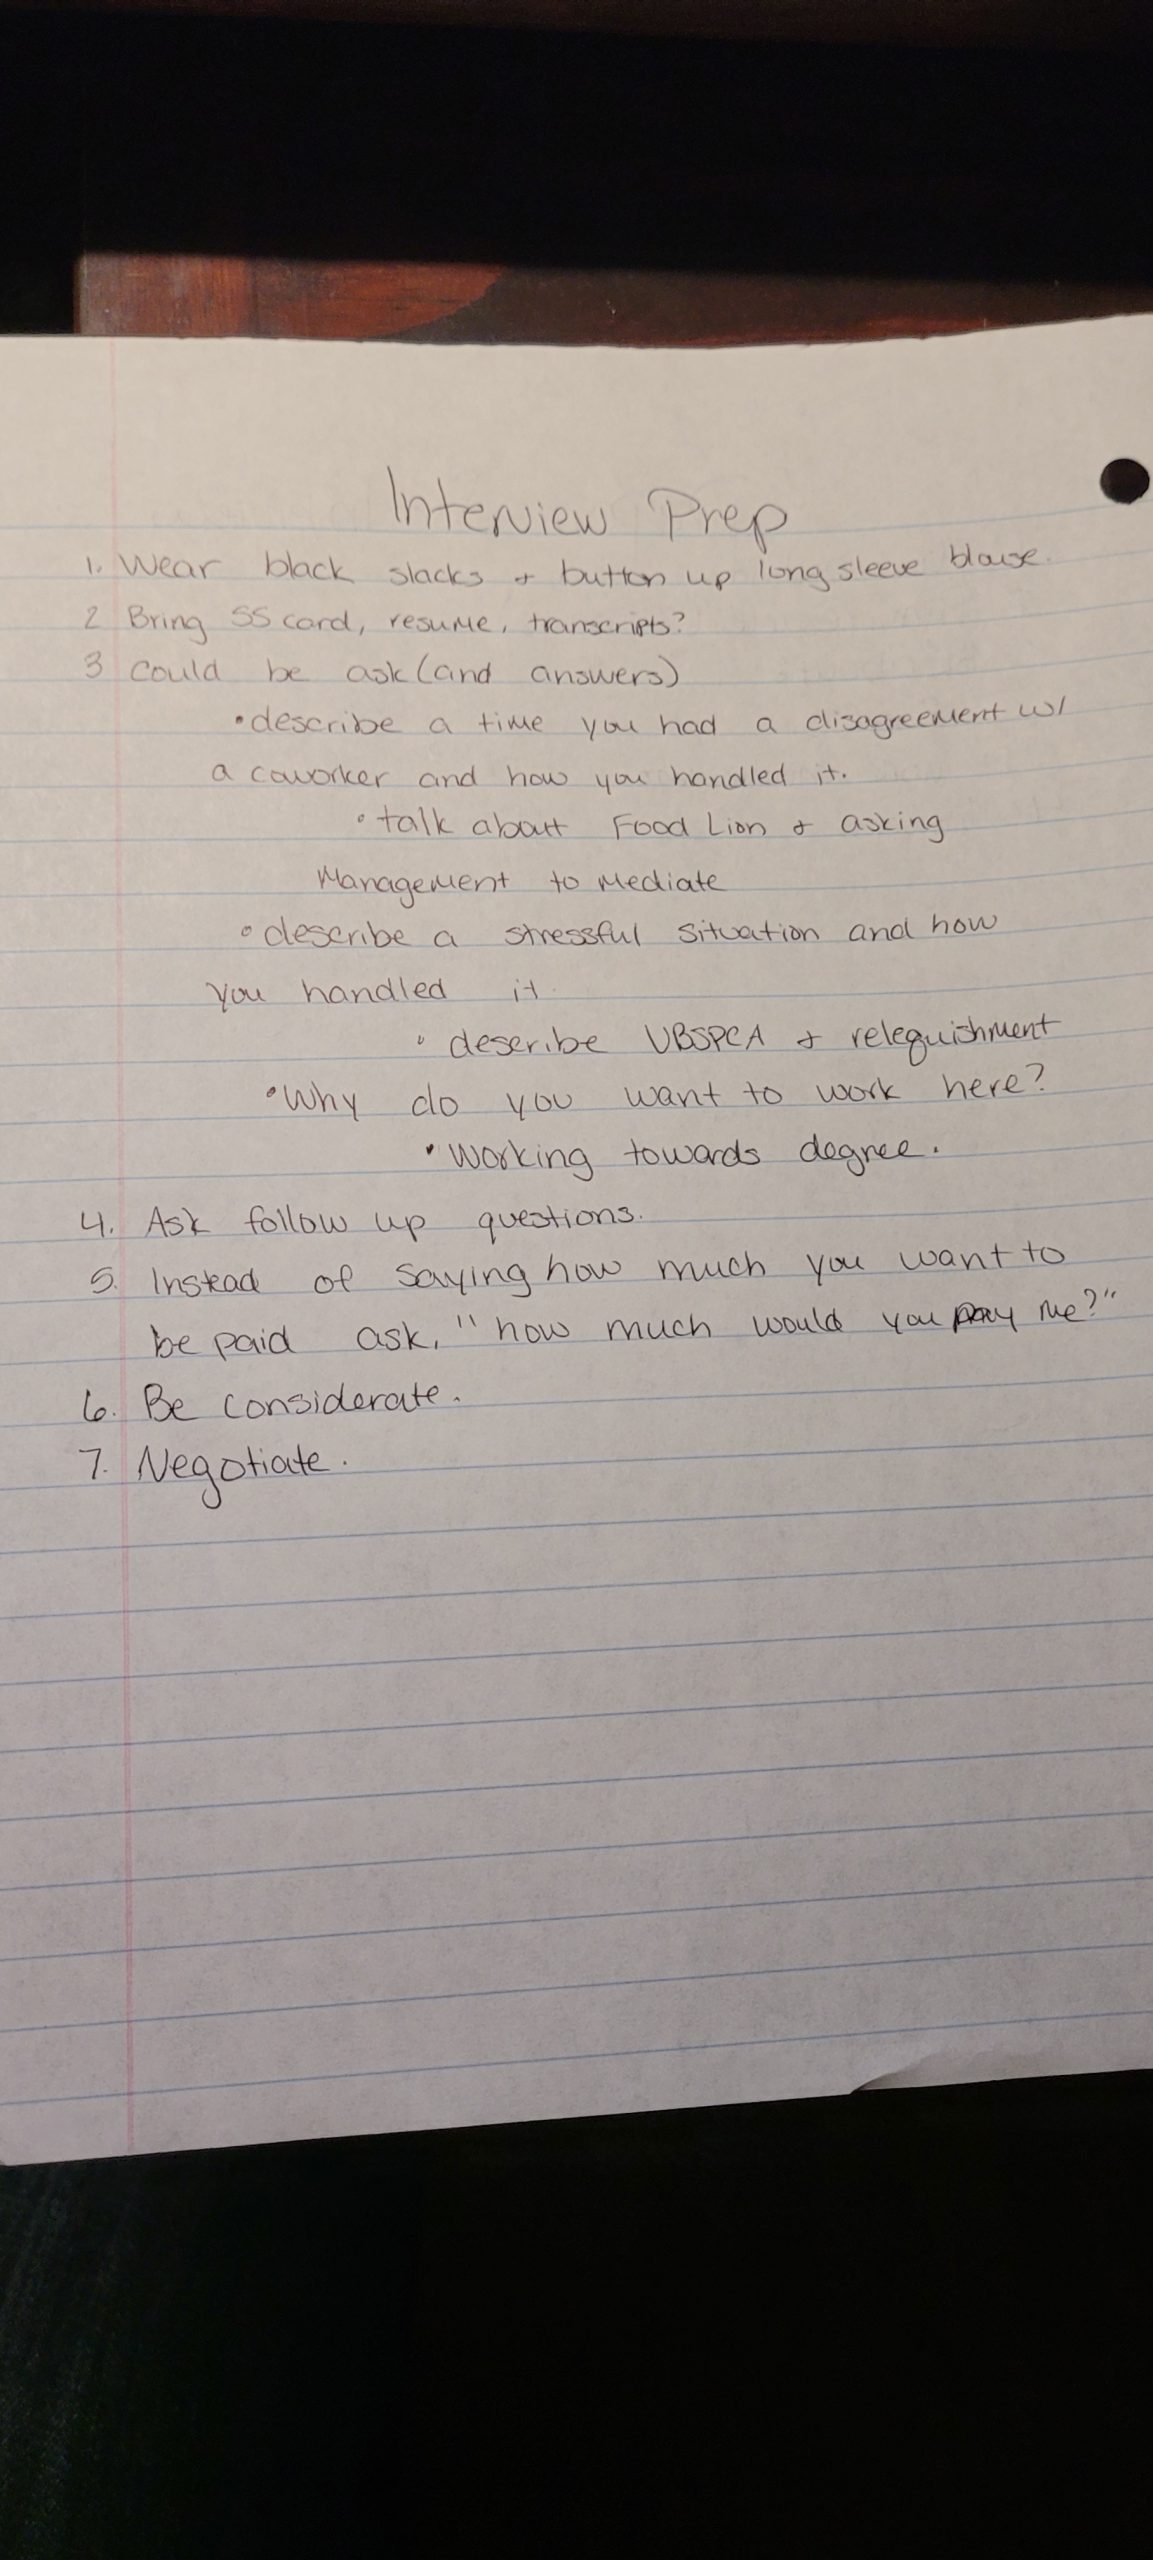 Interview Prep
1. Wear black slacks & button up long sleeve blouse.
2 Bring SS card, resume, transcripts?
3 could be ask (and answers)
• describe a time you had a disagreement w/
a coworker and how you handled it.
• talk about Food Lion & asking
Management to Mediate
• describe a stressful situation and how
you handled it.
• describe VBSPCA & relequishment
• Why do you want to work here?
• Working towards degree.
4. Ask follow up questions.
5. Instead of saying how much you want to
be paid ask, "how much would you pay me?"
6. Be considerate.
7. Negotiate.